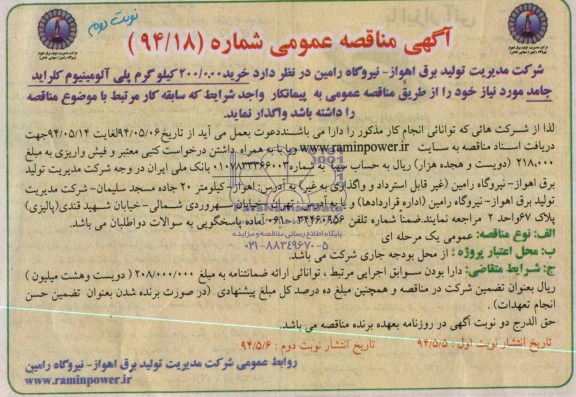 نوبت دوم
آگهی مناقصه عمومی شماره (۹۴/۱۸)
شرکت مدیریت تولید برق اهواز- نیروگاه رامین در نظر دارد خرید ۲۰۰/۰۰۰ کیلو گرم پلی آلومینیوم کلراید
جامد مورد نیاز خود را از طریق مناقصه عمومی به پیمانکار واجد شرایط که سابقه کار مرتبط با موضوع مناقصه
را داشته باشد واگذار نماید.
لذا از شرکت هائی که توانائی انجام کار مذکور را دارا می باشنددعوت بعمل می آید از تاریخ ۹۴/۰۵/۰۶لغایت ۹۴/۰۵/۱۴جهت
دریافت اسناد مناقصه به سایت www.raminpower.ir ویا با به همراه داشتن درخواست کتبی معتبر و فیش واریزی به مبلغ
۲۱۸/۰۰۰ (دویست و هجده هزار) ریال به حساب سیبا به شماره ۰۱۰۷۸۳۳۶۶۰۰۳ بانک ملی ایران در وجه شرکت مدیریت تولید
برق اهواز- نیروگاه رامین (غیر قابل استرداد و واگذاری به غیر) به آدرس: اهواز- کیلومتر ۲۰ جاده مسجد سلیمان- شرکت مدیریت
تولید برق اهواز- نیروگاه رامین (اداره قراردادها) و یا به آدرس: تهران خیابان سهروردی شمالی- خیابان شهید قندی(پالیزی)
پلاک ۶۷واحد ۲ مراجعه نمایند.ضمناً شماره تلفن ۳۴۴۶۰۹۵۶-۰۶۱ آماده پاسخگویی به سوالات دواطلبان می باشد.
پایگاه اطلاع رسانی مناقصه و مزایده
۰۲۱-۸۸۳۴۹۶۷۰-۵
الف: نوع مناقصه: عمومی یک مرحله ای
ب: محل اعتبار پروژه : از محل بودجه جاری شرکت می باشد.
ج: شرایط متقاضی: دارا بودن سوابق اجرایی مرتبط ، توانائی ارائه ضمانتنامه به مبلغ ۲۰۸/۰۰۰/۰۰۰ ( دویست وهشت میلیون )
ریال بعنوان تضمین شرکت در مناقصه و همچنین مبلغ ده درصد کل مبلغ پیشنهادی (در صورت برنده شدن بعنوان تضمین حسن
انجام تعهدات) .
حق الدرج دو نوبت آگهی در روزنامه بعهده برنده مناقصه می باشد.
تاریخ انتشار نوبت اول : ۹۴/۵/۵ تاریخ انتشار نوبت دوم : ۹۴/۵/۶
روابط عمومی شرکت مدیریت تولید برق اهواز- نیروگاه رامین
www.raminpower.ir